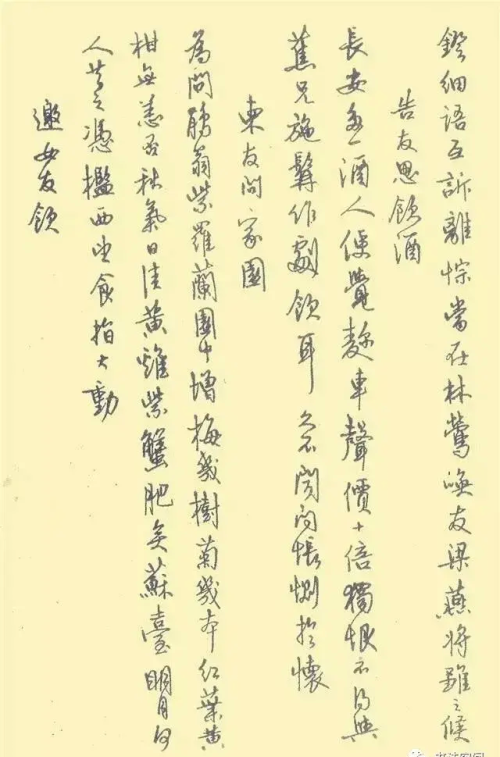 鐙細語互訴離悰當在林鶯喚友梁燕將雛之候
告友思飲酒
長安多一酒人便覺麴車聲價十倍獨恨不得與
蕉兄施髯作劇飲耳久不聞問悵惘於懷
柬友問家園
為問觴翁紫羅蘭園中增梅幾樹菊幾本紅葉黃
柑無恙否秋氣日佳黃雞紫蟹肥矣蘇臺明月何
人共之憑檻西望食指大動
邀女友飲